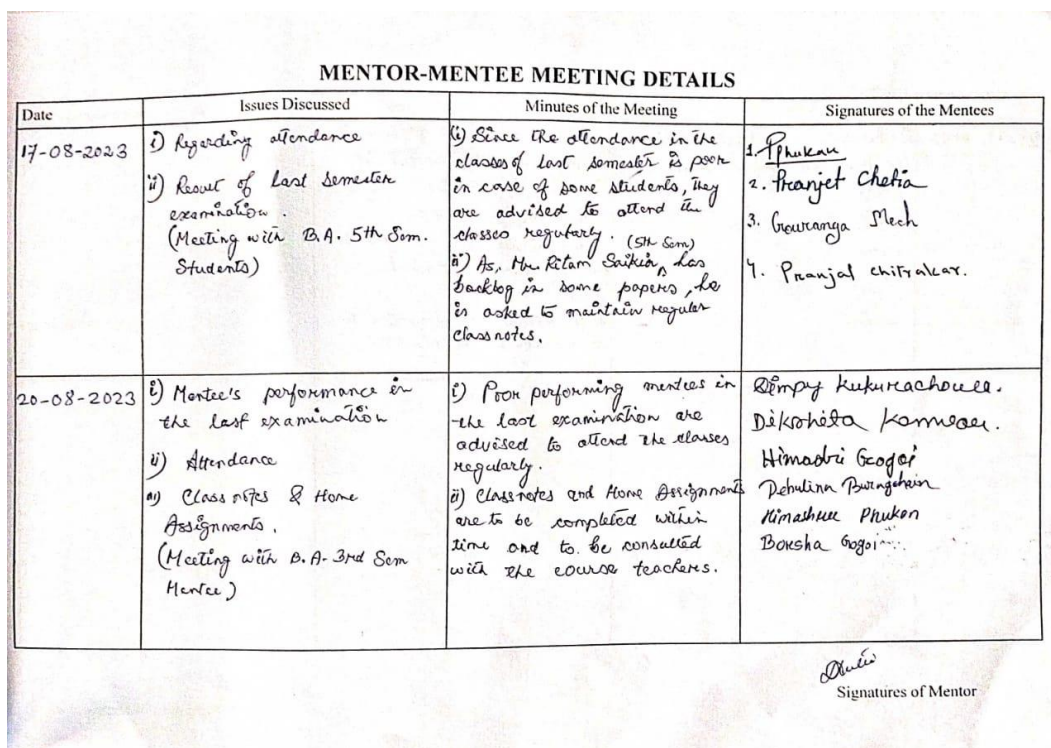 MENTOR-MENTEE MEETING DETAILS
Date
Issues Discussed
Minutes of the Meeting
Signatures of the Mentees
17-08-2023
i) Regarding attendance
ii) Result of last semester
examination.
(Meeting with B.A. 5th Sem.
Students)
(i) Since the attendance in the
classes of last semester is poor
in case of some students, they
are advised to attend the
classes regularly.
(5th Sem)
ii) As, Mr. Ritam Saikia, has
backlog in some papers, he
is asked to maintain regular
classnotes.
1. PPhukan
2. Pranjet Chetia
3. Gouranga Mech
4. Pranjal chitrakar.
20-08-2023
i) Mentee's performance in
the last examination
ii) Attendance
iii) Class notes & Home
Assignments.
(Meeting with B.A. 3rd Sem
Mentee)
i) Poor performing mentees in
the last examination are
advised to attend the classes
regularly.
ii) Classnotes and Home Assignments
are to be completed within
time and to be consulted
with the course teachers.
Dimpy
Dikshita
Himadri Gogoi
Buragohain
Himashree Phukan
Borsha Gogoi
Signatures of Mentor